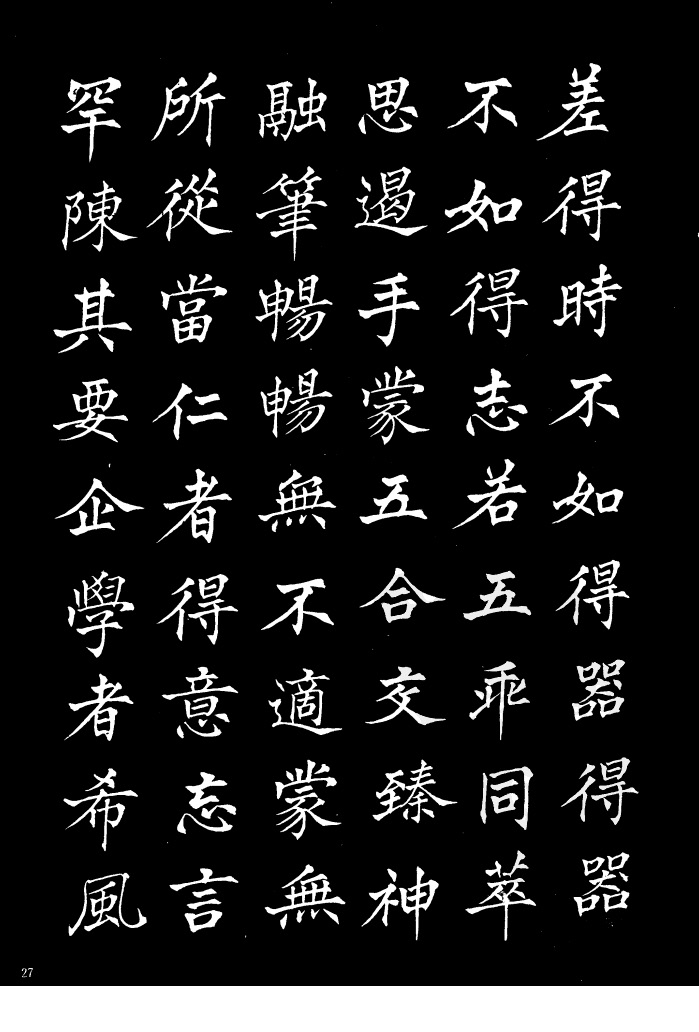 差得時不如得器得器
不如得志若五乖同萃
思遏手蒙五合交臻神
融筆暢暢無不適蒙無
所從當仁者得意忘言
罕陳其要企學者希風
27